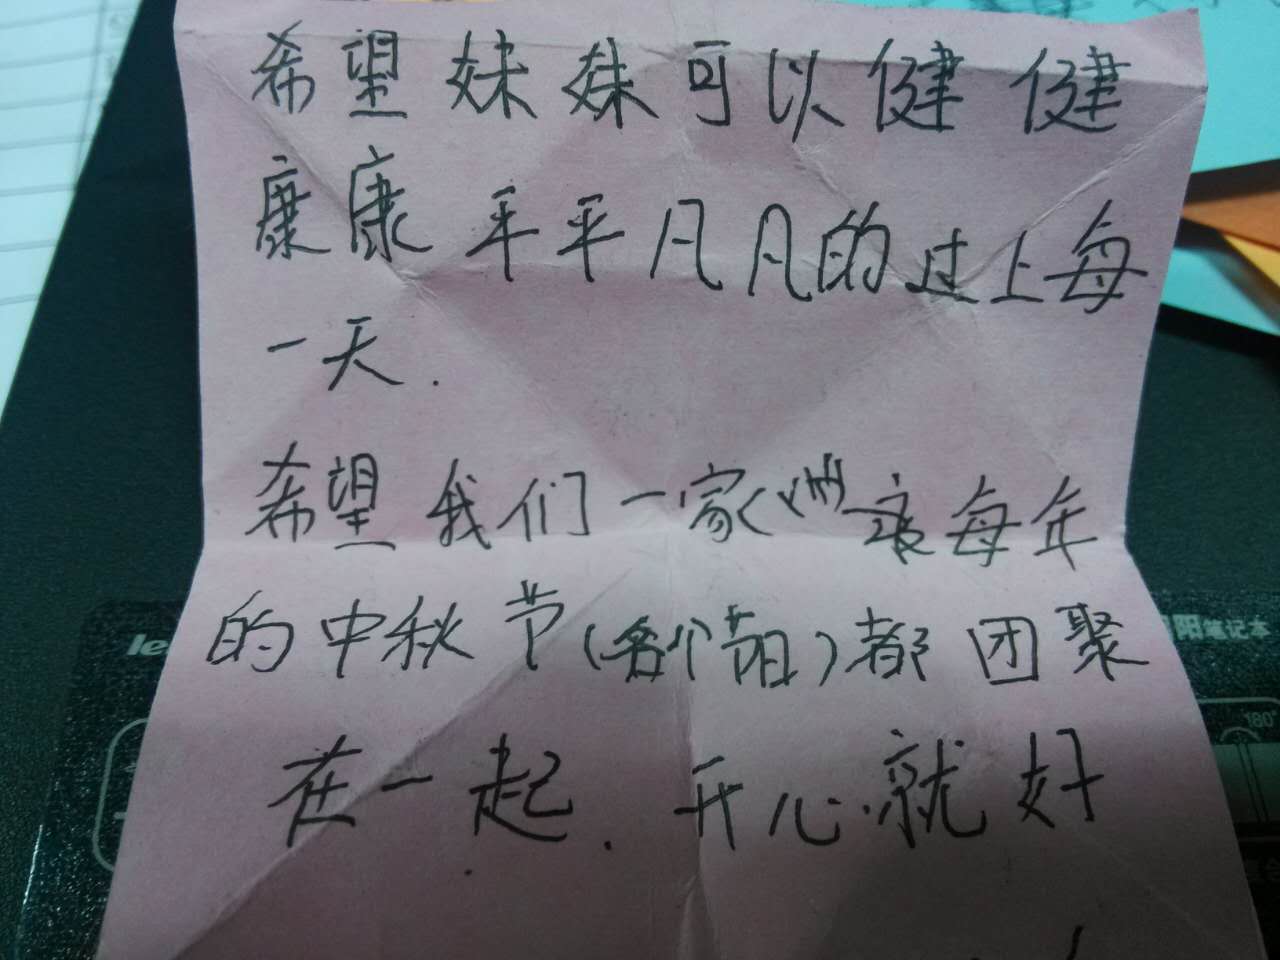 希望妹妹可以健健
康康平平凡凡的过上每
一天.
希望我们一家 每年
的中秋节(各个节日)都团聚
在一起.开心就好
le
阳笔记本
180°